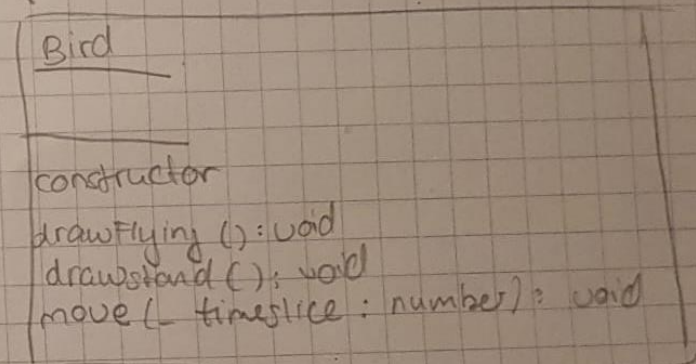 Bird
constructor
drawFlying (): void
drawstand (): void
move (_ timeslice : number): void